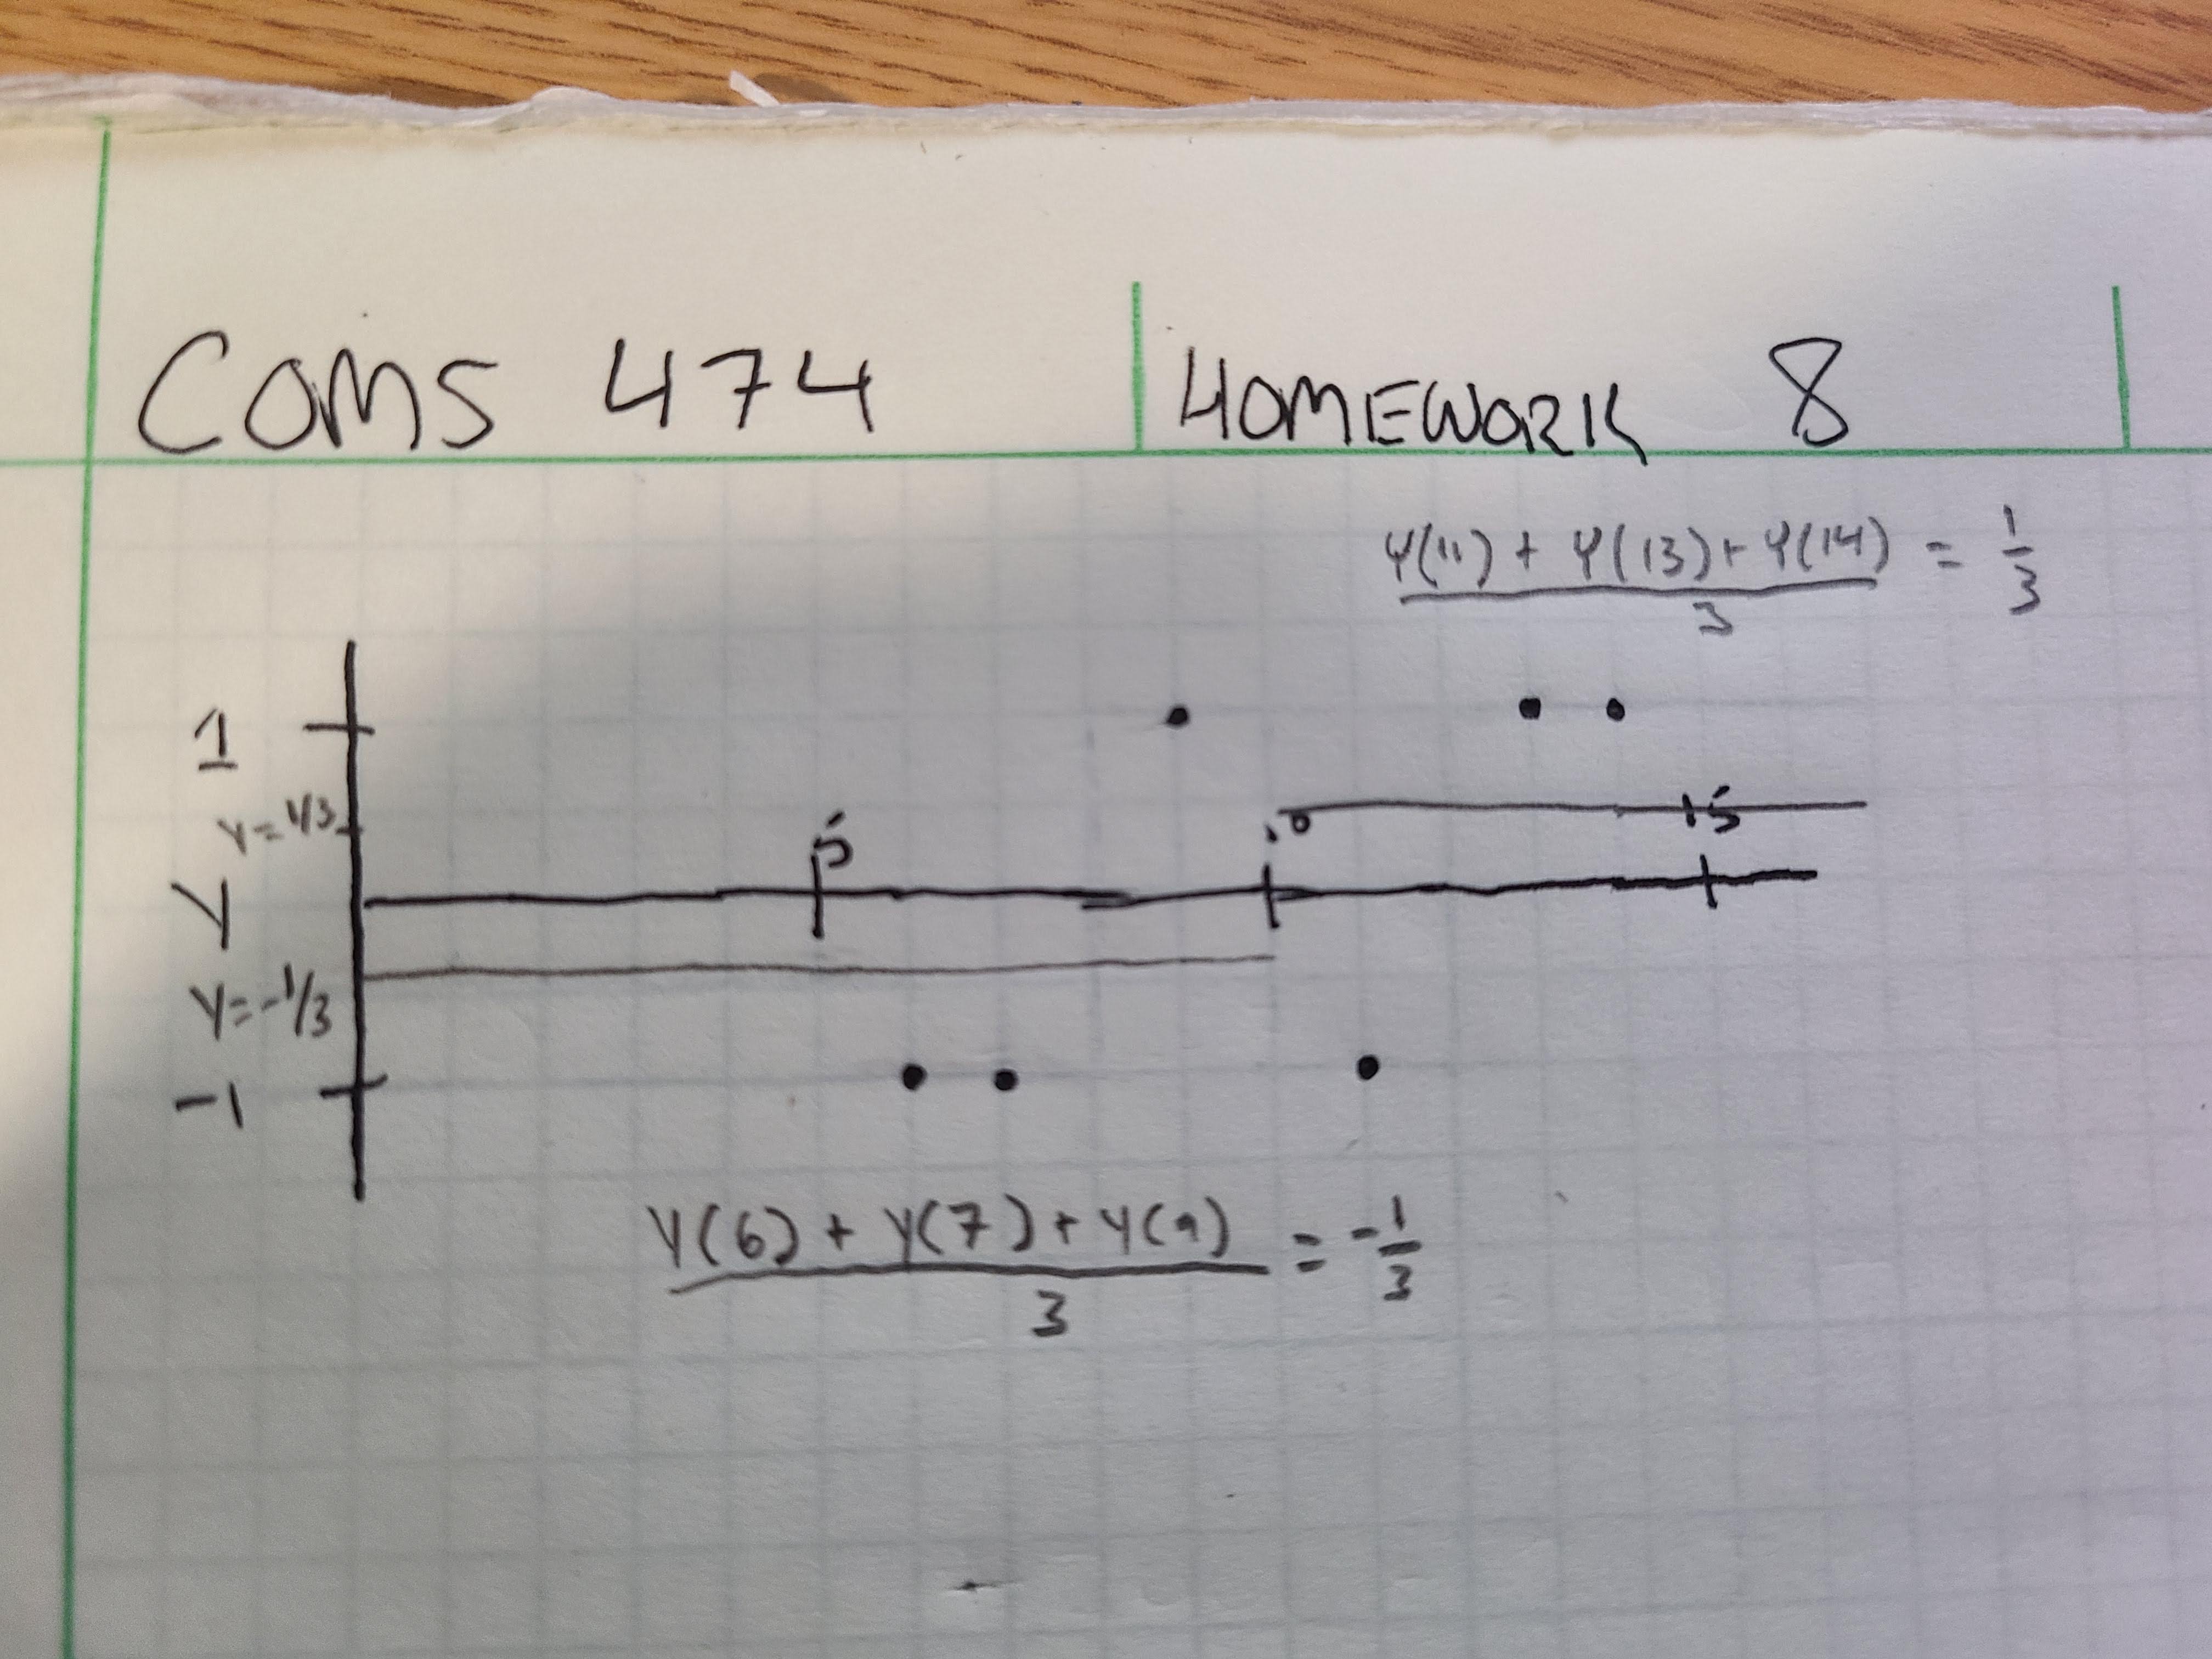 COMS 474 HOMEWORK 8
Y(11) + Y(13) + Y(14) = 1
3 3
1
Y=1/3
5 10 15
Y
Y=-1/3
-1
Y(6) + Y(7) + Y(9) = -1
3 3